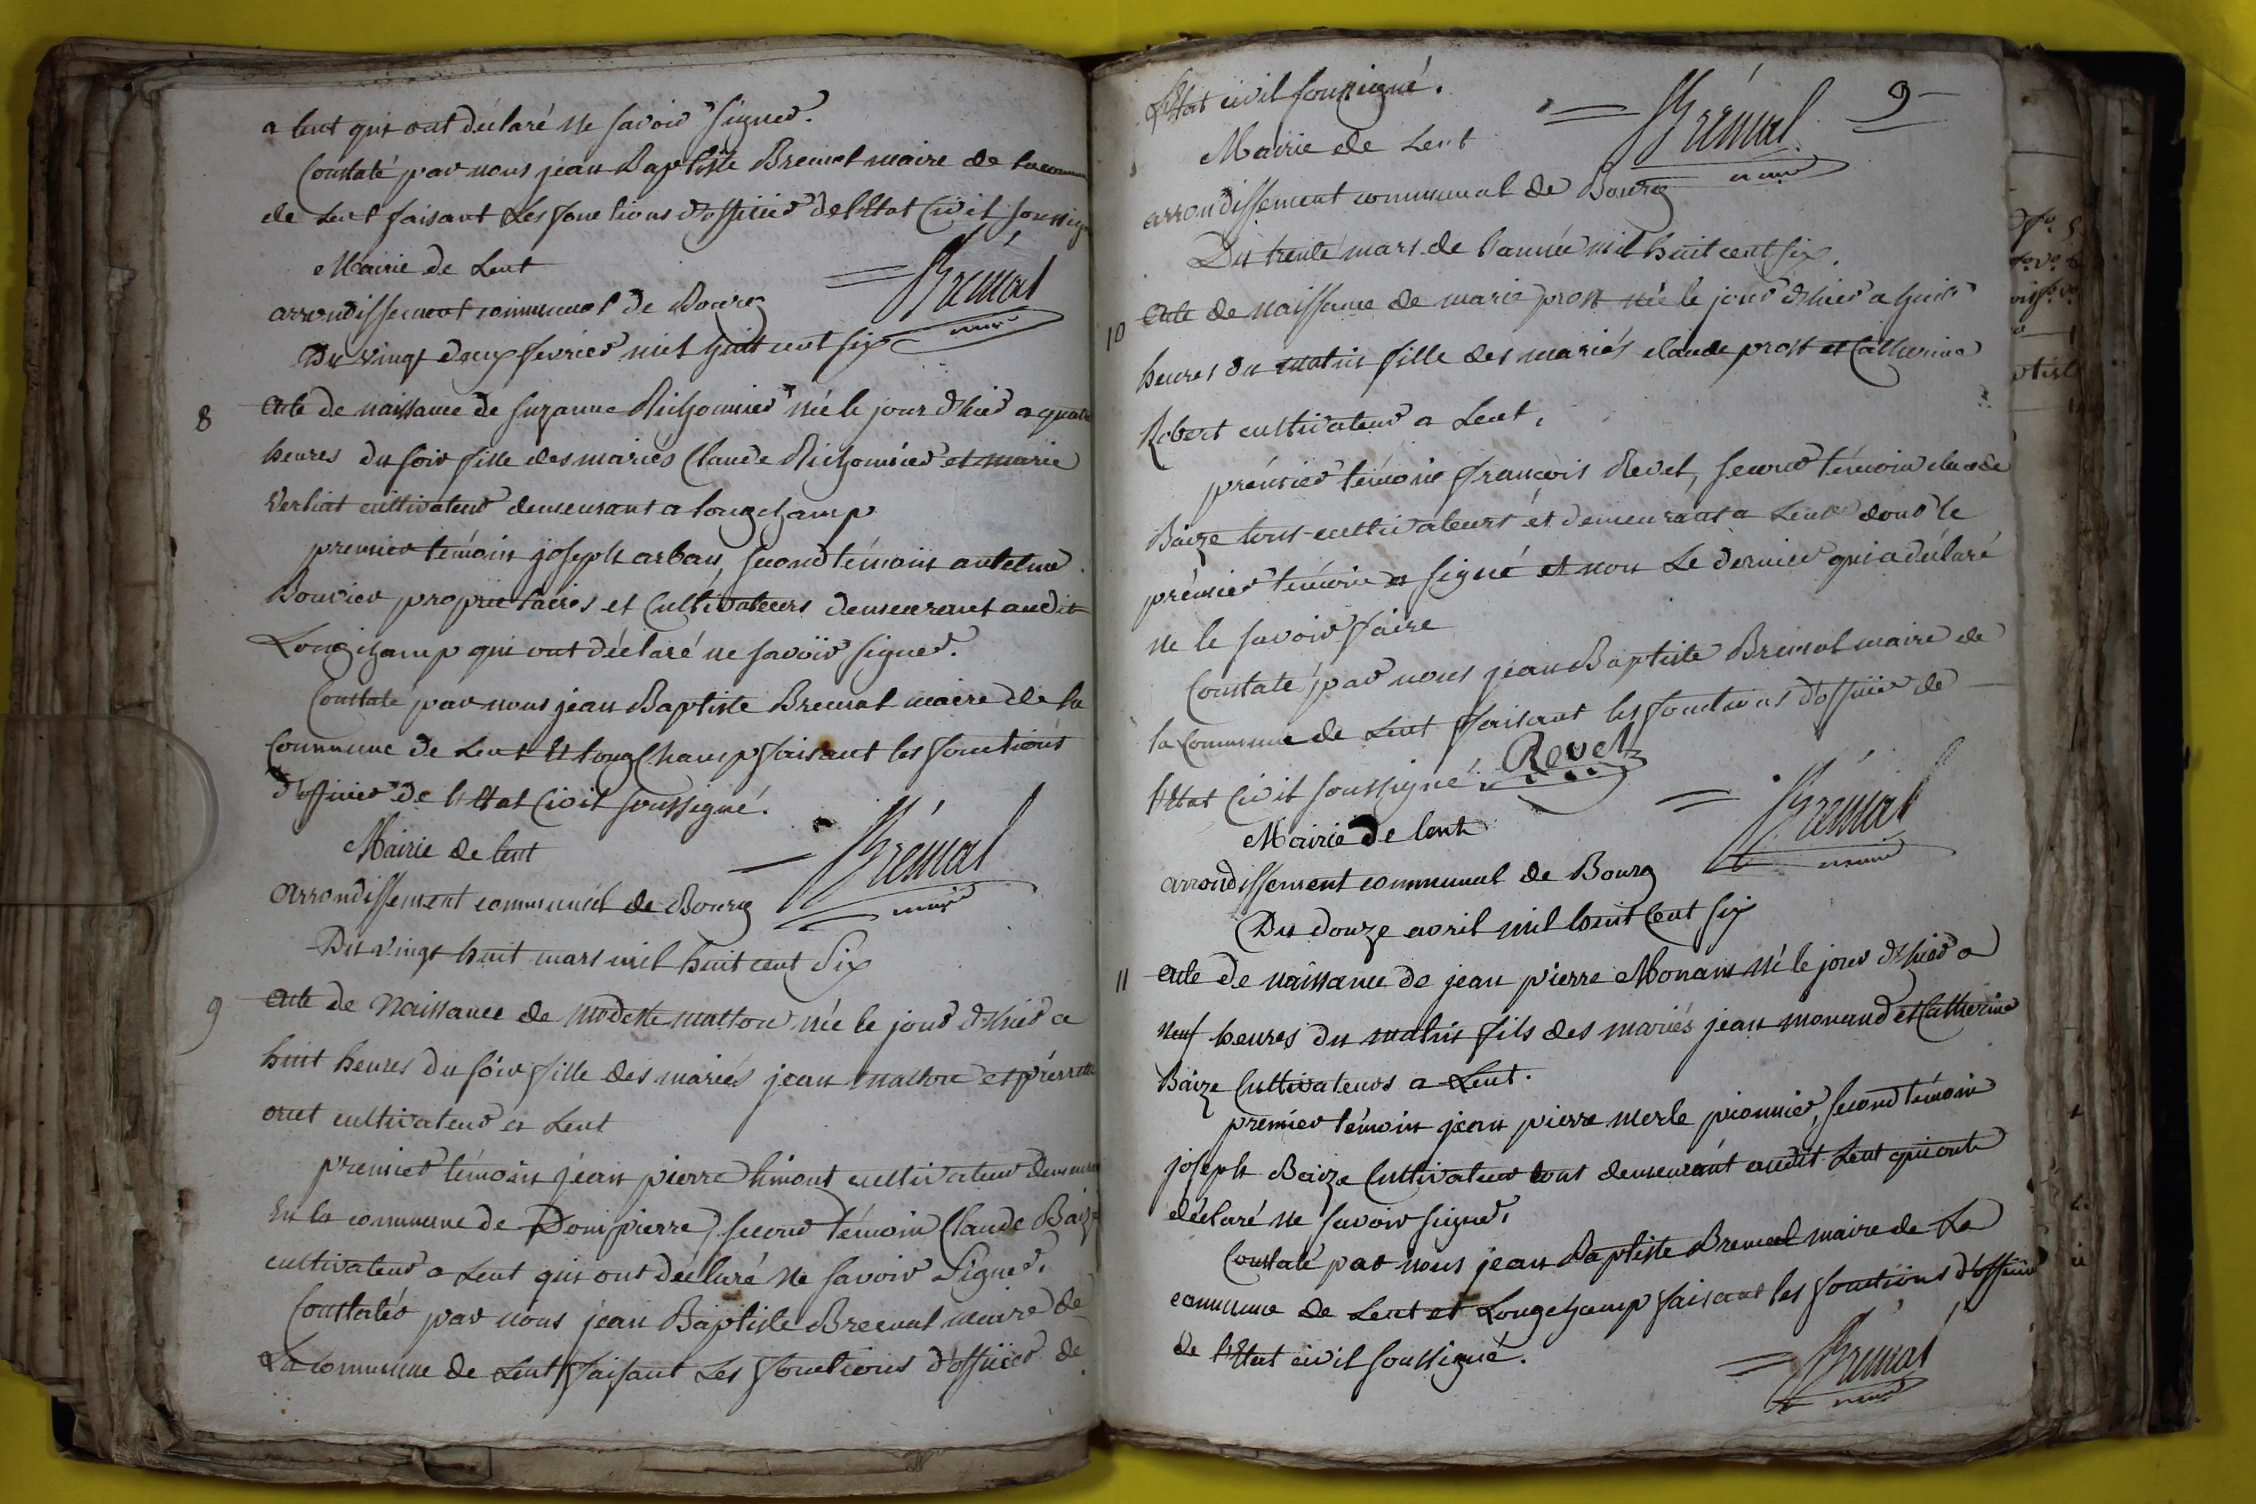 a lent qui ont déclaré ne savoir signer.
Constaté par nous jean Baptiste Bremal maire de la commu
de Lent faisant les fonctions d'officier de l'Etat Civil soussign
Mairie de Lent
Brémal
maire
arrondissement communal de Bourg
Du vingt deux fevrier mil huit cent six
8
acte de naissance de suzanne Richonnier née le jour d'hier a quatre
heures du soir fille des mariés Claude Richonnier et marie
Verliat cultivateur demeurant a longchamp
premier témoin joseph arban, second témoin antelme
Bouvier propriétaires et Cultivateurs demeurant audit
Longchamp qui ont déclaré ne savoir signer.
Constaté par nous jean Baptiste Bremal maire de la
Commune de Lent et longChamp faisant les fonctions
d'officier de l'Etat Civil soussigné.
Mairie de lent
Brémal
maire
arrondissement communal de Bourg
Du vingt huit mars mil huit cent Six
9
acte de Naissance de modeste mallou née le jour d'hier a
huit heures du soir fille des mariés jean mallou et pierrette
oruet cultivateur a Lent
premier témoin jean pierre limont cultivateur demeurant
en la commune de Dompierre, second témoin Claude Baize
cultivateur a Lent qui ont déclaré ne savoir Signer.
Constatés par nous jean Baptiste Bremal maire de
La commune de Lent faisant Les fonctions d'officier de
l'Etat civil soussigné.
9
Brémal
maire
Mairie de Lent
arrondissement communal de Bourg
Du trente mars de l'année mil huit cent six.
10
acte de naissance de marie prost née le jour d'hier a huit
heures du matin fille des mariés claude prost et Catherine
Robert cultivateur a Lent,
prémier témoin françois Revel, second témoin claude
Baize tous cultivateurs et demeurant a Lent dont le
prémier témoin a signé et non Le dernier qui a déclaré
ne le savoir faire
Constaté par nous jean Baptiste Bremal maire de
la Commune de Lent faisant les fonctions d'officier de
l'Etat Civil soussigné.
Revel
Brémal
maire
Mairie de lent
arrondissement communal de Bourg
Du douze avril mil huit Cent six
11
acte de naissance de jean pierre Monam né le jour d'hier a
neuf heures du matin fils des mariés jean monand et Catherine
Baize Cultivateurs a Lent.
premier témoin jean pierre merle pionnier, second témoin
joseph Baize Cultivateur tous demeurant audit Lent qui ont
déclaré ne savoir signer.
Constaté par nous jean Baptiste Bremal maire de La
commune de Lent et Longchamp faisant les fonctions d'officier
de l'Etat civil soussigné.
Brémal
maire